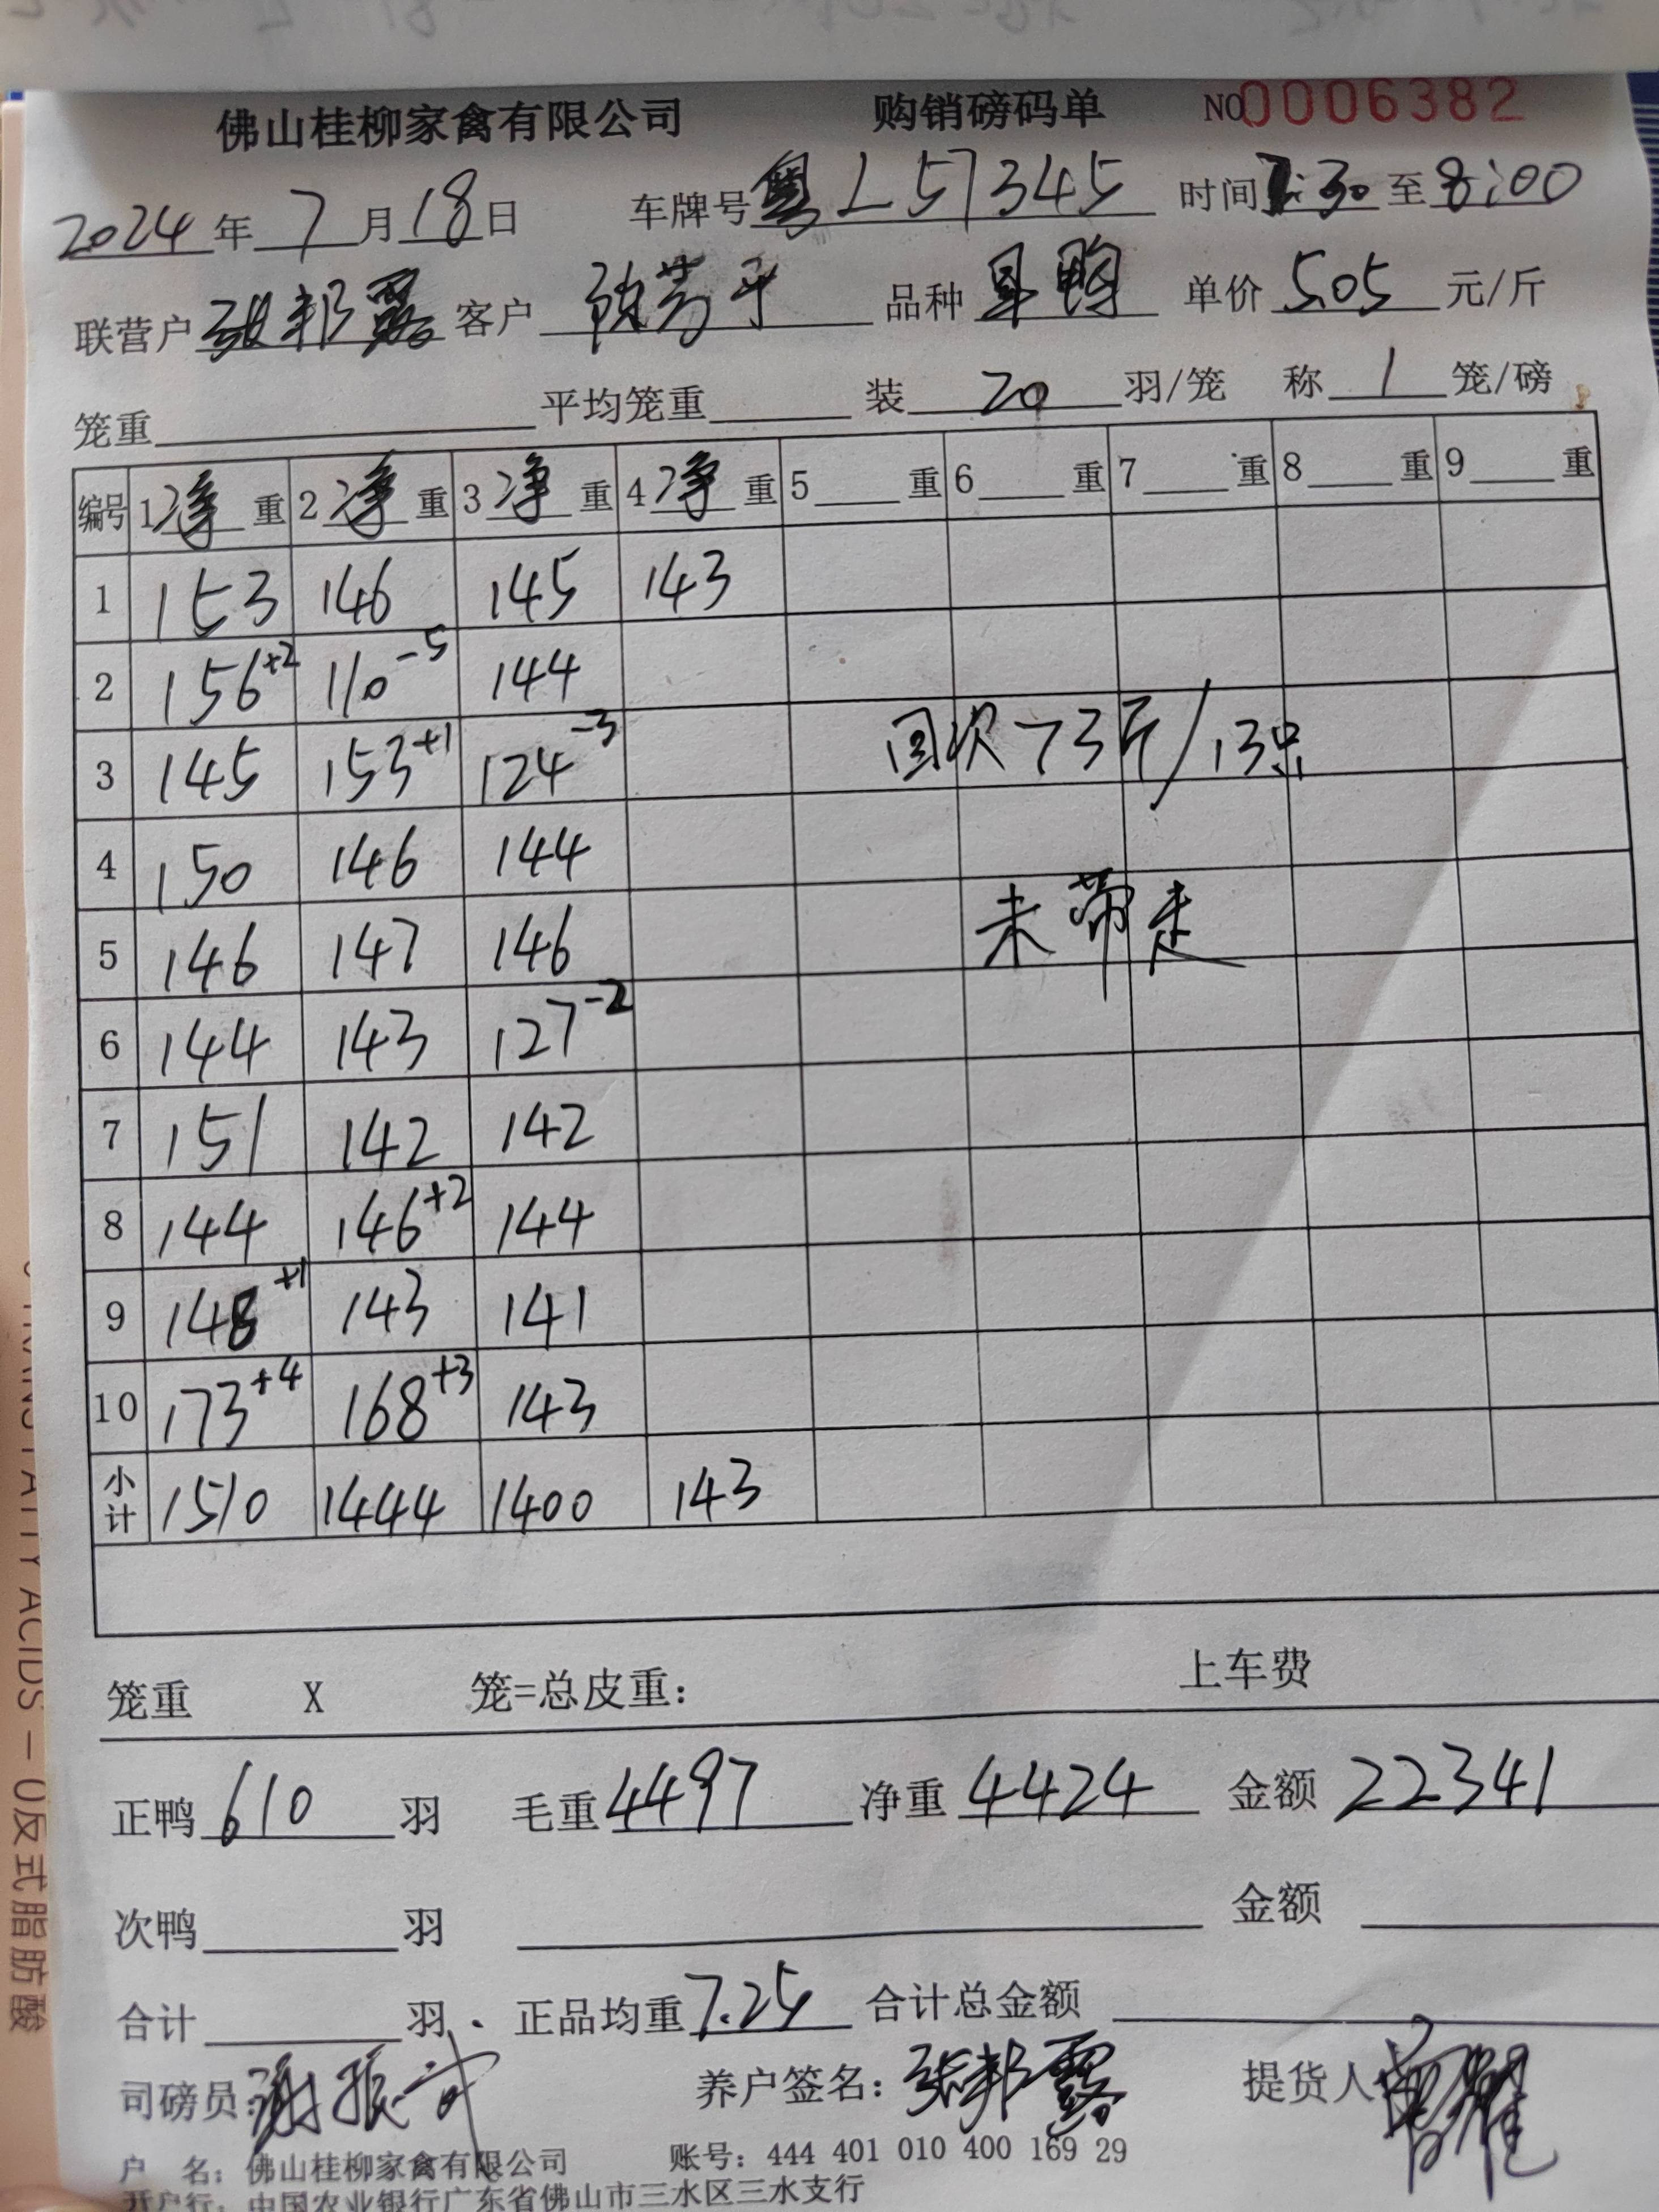 佛山桂柳家禽有限公司 购销磅码单 NO0006382
2024年7月18日 车牌号粤L51345 时间7:30至8:00
联营户张邦露 客户 芳平 品种 鸭 单价5.05元/斤
笼重 平均笼重 装20羽/笼 称1笼/磅
编号 1净重 2净重 3净重 4净重 5重 6重 7重 8重 9重
1 153 146 145 143
2 156+2 110-5 144
3 145 153+1 124-3 回次73斤/13只
4 150 146 144
5 146 147 146 未带走
6 144 143 127-2
7 151 142 142
8 144 146+2 144
9 148+1 143 141
10 173+4 168+3 143
小计 1510 1444 1400 143
笼重 X 笼=总皮重: 上车费
正鸭610羽 毛重4497 净重4424 金额22341
次鸭 羽 金额
合计 羽. 正品均重7.25 合计总金额
司磅员:谢振 养户签名:张邦露 提货人
户 名: 佛山桂柳家禽有限公司 账号: 444 401 010 400 169 29
开户行: 中国农业银行广东省佛山市三水区三水支行
ACIDS - 0反式脂肪酸